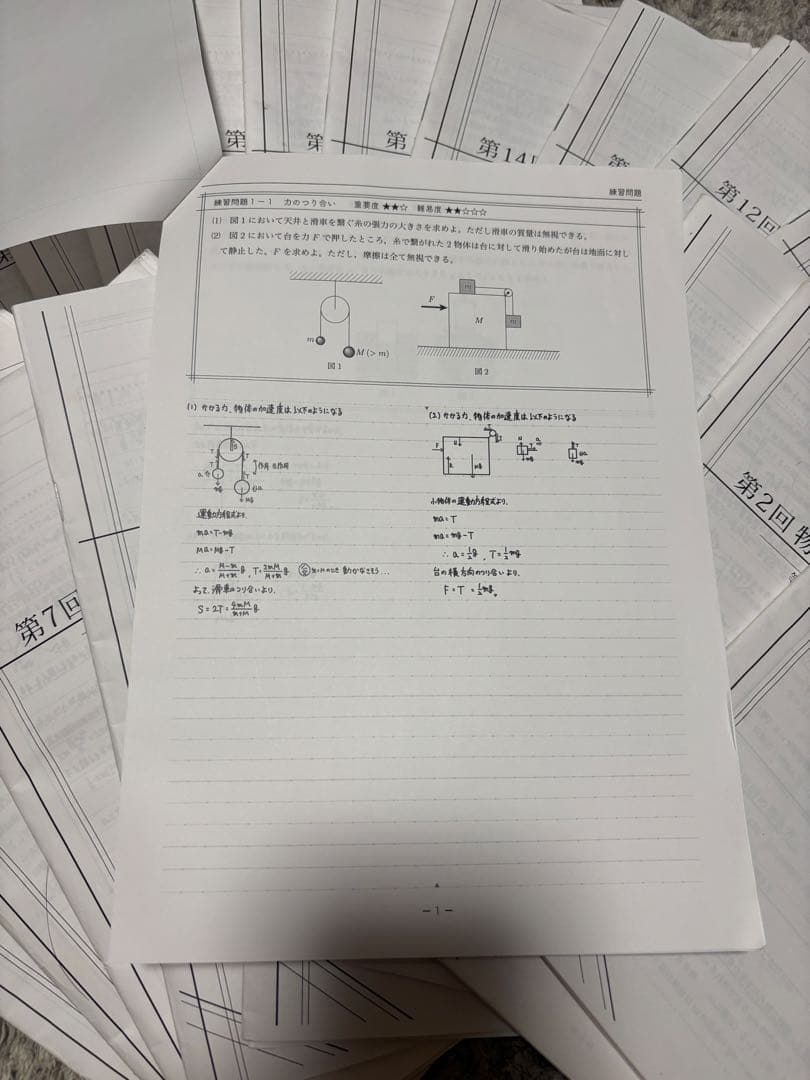 第
第
第
第14回
第
第12回
練習問題
練習問題1－1　力のつり合い　重要度 ★★☆　難易度 ★★☆☆☆
(1) 図1において天井と滑車を繋ぐ糸の張力の大きさを求めよ。ただし滑車の質量は無視できる。
(2) 図2において台を力 F で押したところ、糸で繋がれた2物体は台に対して滑り始めたが台は地面に対し
て静止した。F を求めよ。ただし、摩擦は全て無視できる。
m
M (> m)
図1
F
m
M
m
図2
(1) かかる力、物体の加速度は以下のようになる
S
T
T
T
T
a
mg
a
Mg
作用・反作用
運動方程式より、
ma = T - mg
Ma = Mg - T
∴ a = \frac{M-m}{M+m} g , T = \frac{2mM}{M+m} g
m=Mのとき 動かなそう…
よって、滑車のつり合いより、
S = 2T = \frac{4mM}{m+M} g
(2) かかる力、物体の加速度は以下のようになる
F
T
T
N
Mg
N
T
a
mg
T
a
mg
小物体の運動方程式より、
ma = T
ma = mg - T
∴ a = \frac{1}{2} g , T = \frac{1}{2} mg
台の横方向のつり合いより、
F = T = \frac{1}{2} mg
第7回
第2回 物
－1－